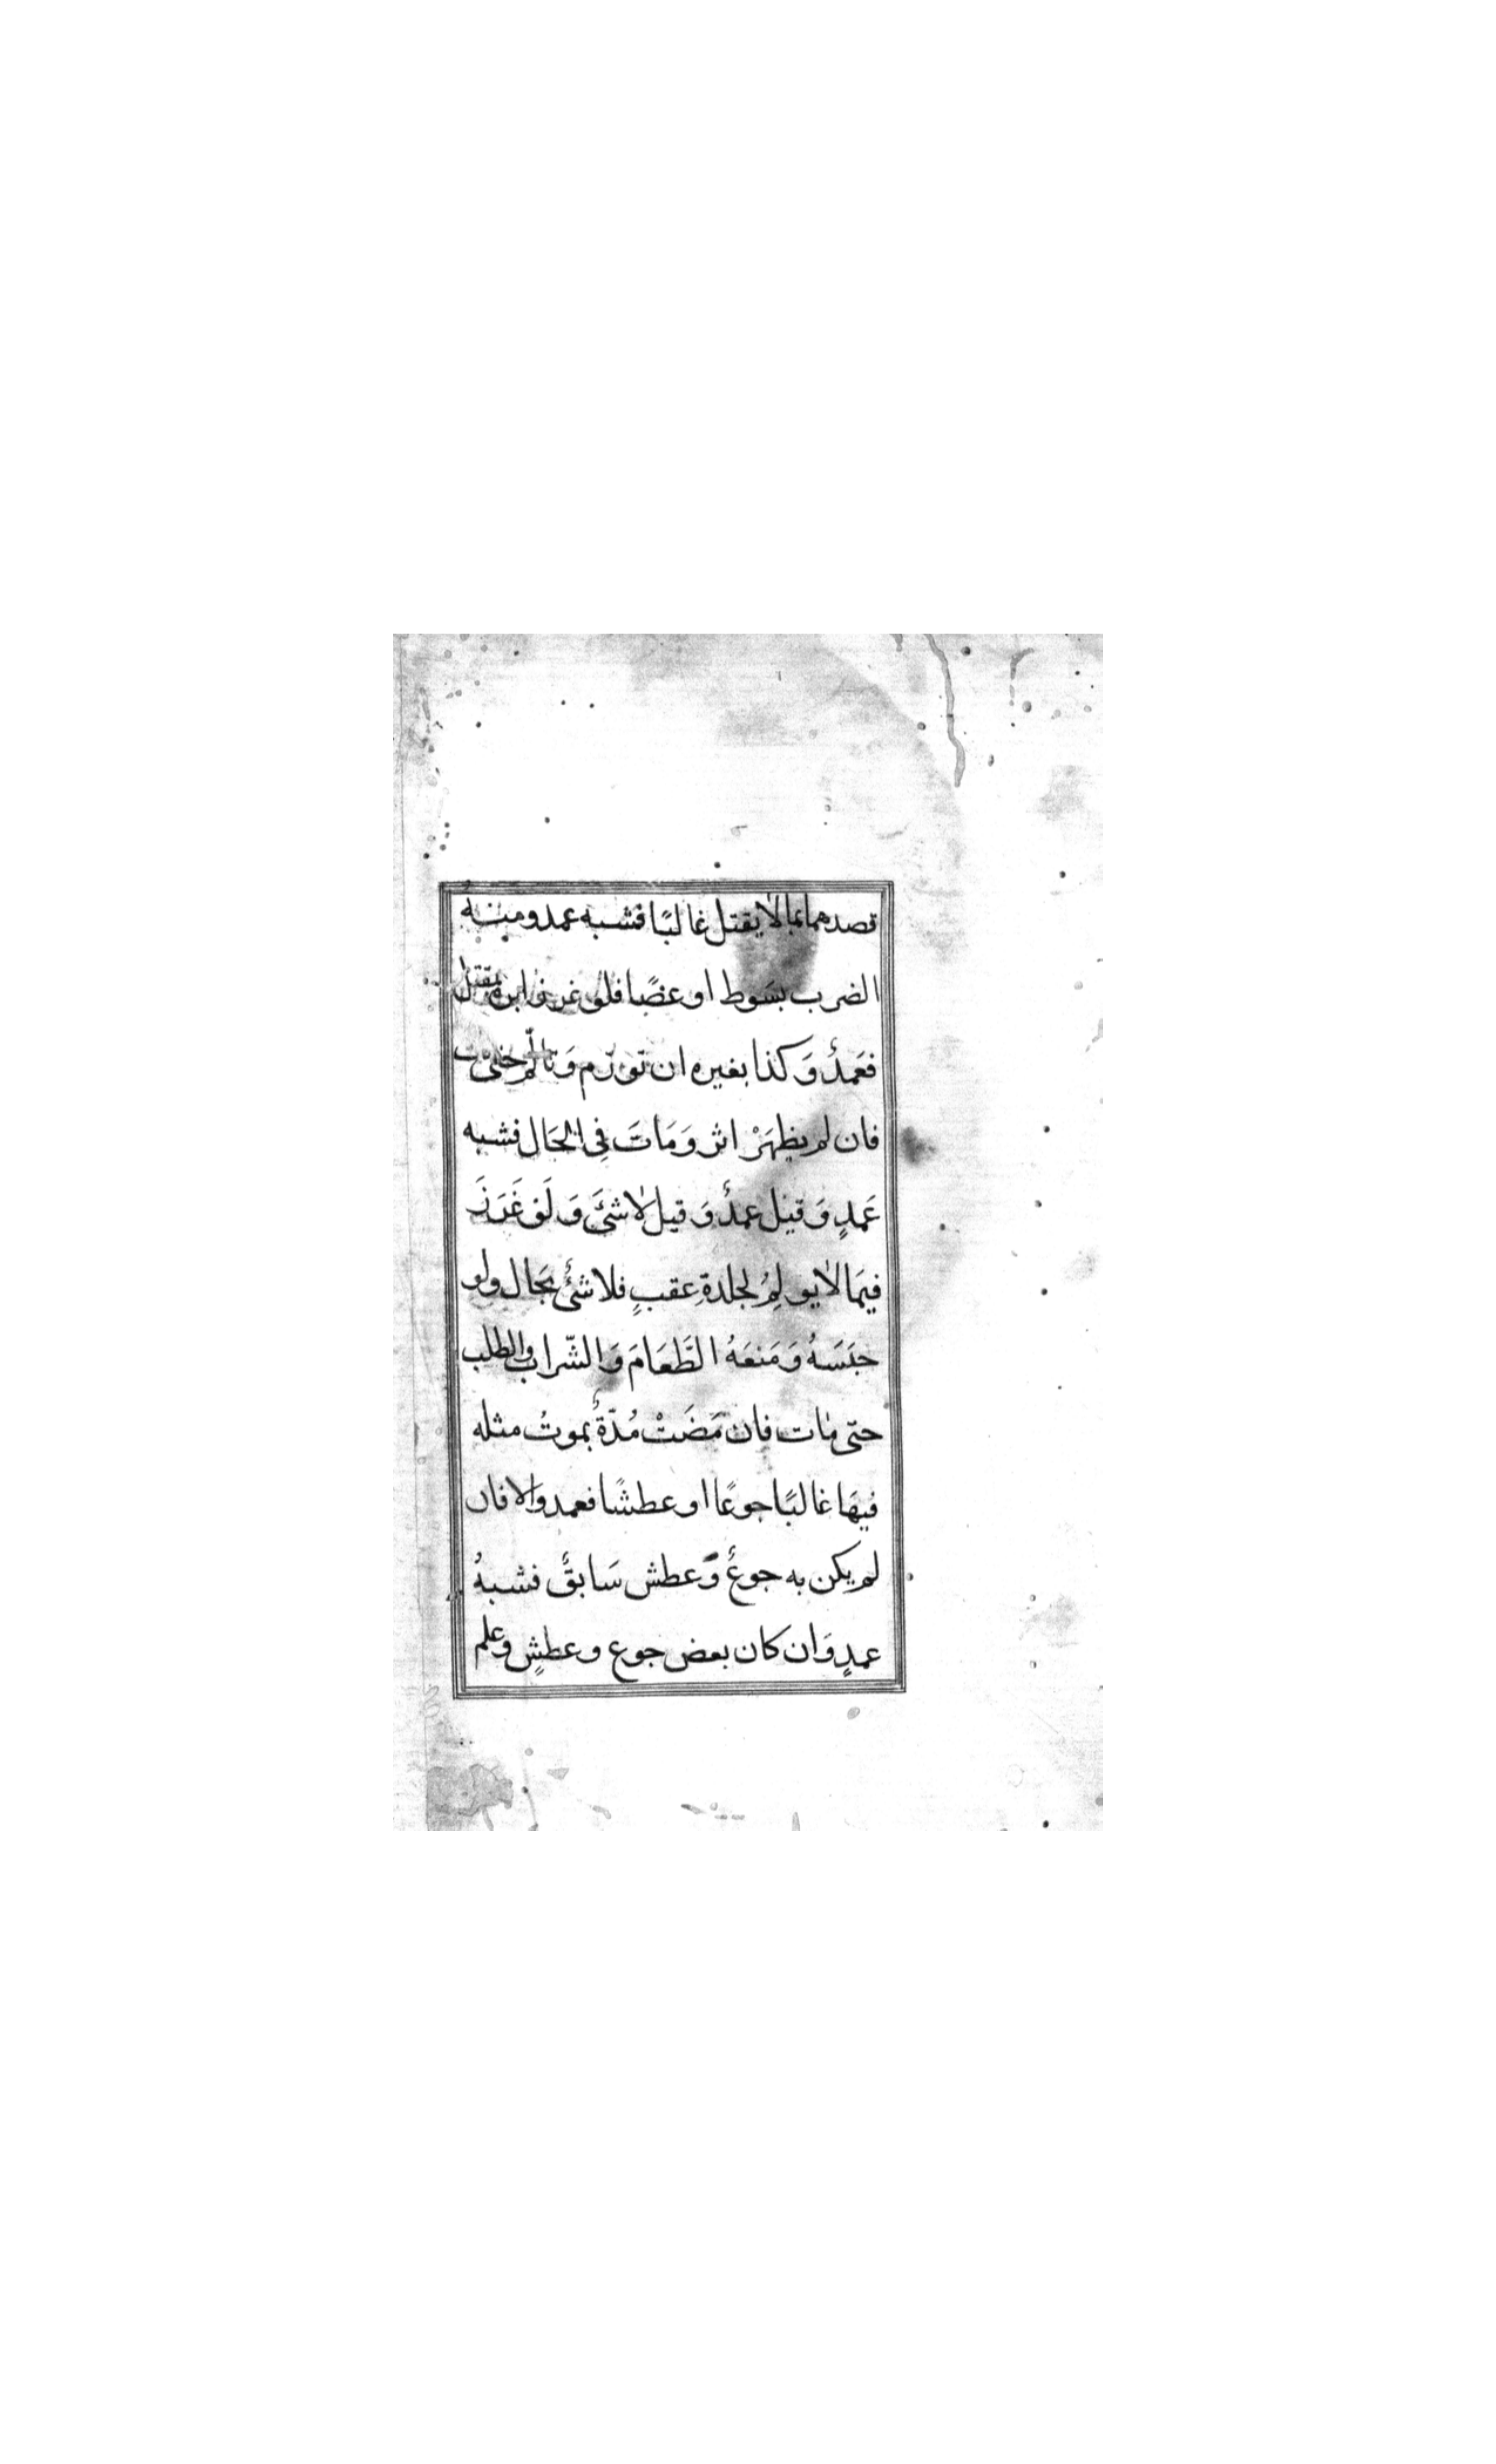 قصدهما بما لا يقتل غالبًا فشبه عمد ومنهُ
الضرب بسَوط او عصًا فلو غرز ابرة بمقتل
فعَمدٌ وَكذا بغيره ان تورّم وَتألّم حتى مات
فان لم يظهَرْ اثر وَمَاتَ فِي الحَال فشبه
عَمدٍ وَقيل عمدٌ وَقيل لا شئَ وَلَوْ غَرَزَ
فيمَا لا يولِمُ لجلدةِ عقبٍ فلا شئٌ بحَال ولو
حبَسَهُ وَمَنعَهُ الطَّعَامَ وَالشّراب والطلب
حتّى مات فان مَضَتْ مُدّةٌ يموتُ مثله
فيهَا غالبًا جوعًا او عطشًا فعمد والا فان
لم يكن به جوعٌ وَعطش سَابقٌ فشبهُ
عمدٍ وَان كان بعض جوع وعطشٍ وعلم